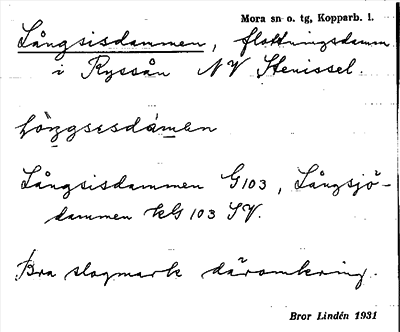 Mora sn o. tg, Kopparb. l.
Långsisdammen, flottningsdamm
i Ryssån NV Stenissel.
lòngsesdámen
Långsisdammen G103, Långsjö-
dammen kG 103 SV.
Bra slogmark däromkring.
Bror Lindén 1931